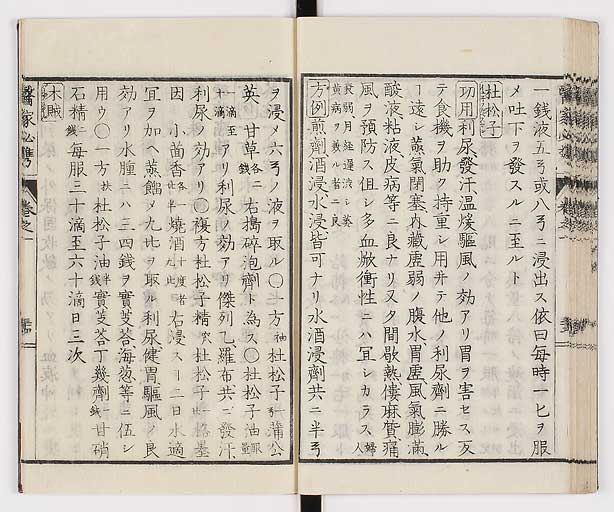 一錢液五弓或八弓ニ浸出ス依曰每時一匕ヲ服
メ吐下ヲ發スルニ至ルト
杜松子
功用利尿發汗温煖驅風ノ効アリ胃ヲ害セス反
テ食機ヲ助ク持重シ用井テ他ノ利尿劑ニ勝ル
ー遠シ蒸氣閉塞内藏虚弱ノ腹水胃虚風氣膨滿
酸液粘液皮病等ニ良ナリ又タ間歇熱僂麻質痛
風ヲ預防ス但シ多血焮衝性ニハ宜シカラス婦人
衰弱月經澁シ萎黄病ヲ兼ル者ニ良
方例煎劑酒浸水浸皆可ナリ水酒浸劑共ニ半弓
ヲ浸メ六弓ノ液ヲ取ル〇一方杜松子蒲公
英甘草各二錢右擣碎泡劑ト為ス〇杜松子油服量
一滴至十滴アリ利尿ノ効アリ傑列乙羅布共ニ發汗
利尿ノ効アリ〇複方杜松子精杜松子一格墨
因小茴香半燒酒右浸スー二日水適
宜ヲ加ヘ蒸餾メ九ヲ取ル利尿健胃驅風ノ良
効アリ水腫ニハ三四錢ヲ實芰荅海葱等ニ伍シ
用ウ〇一方杜松子油半錢實芰荅丁幾劑一錢甘硝
石精錢每服三十滴至六十滴日三次
木賊
醫家必携
卷之一